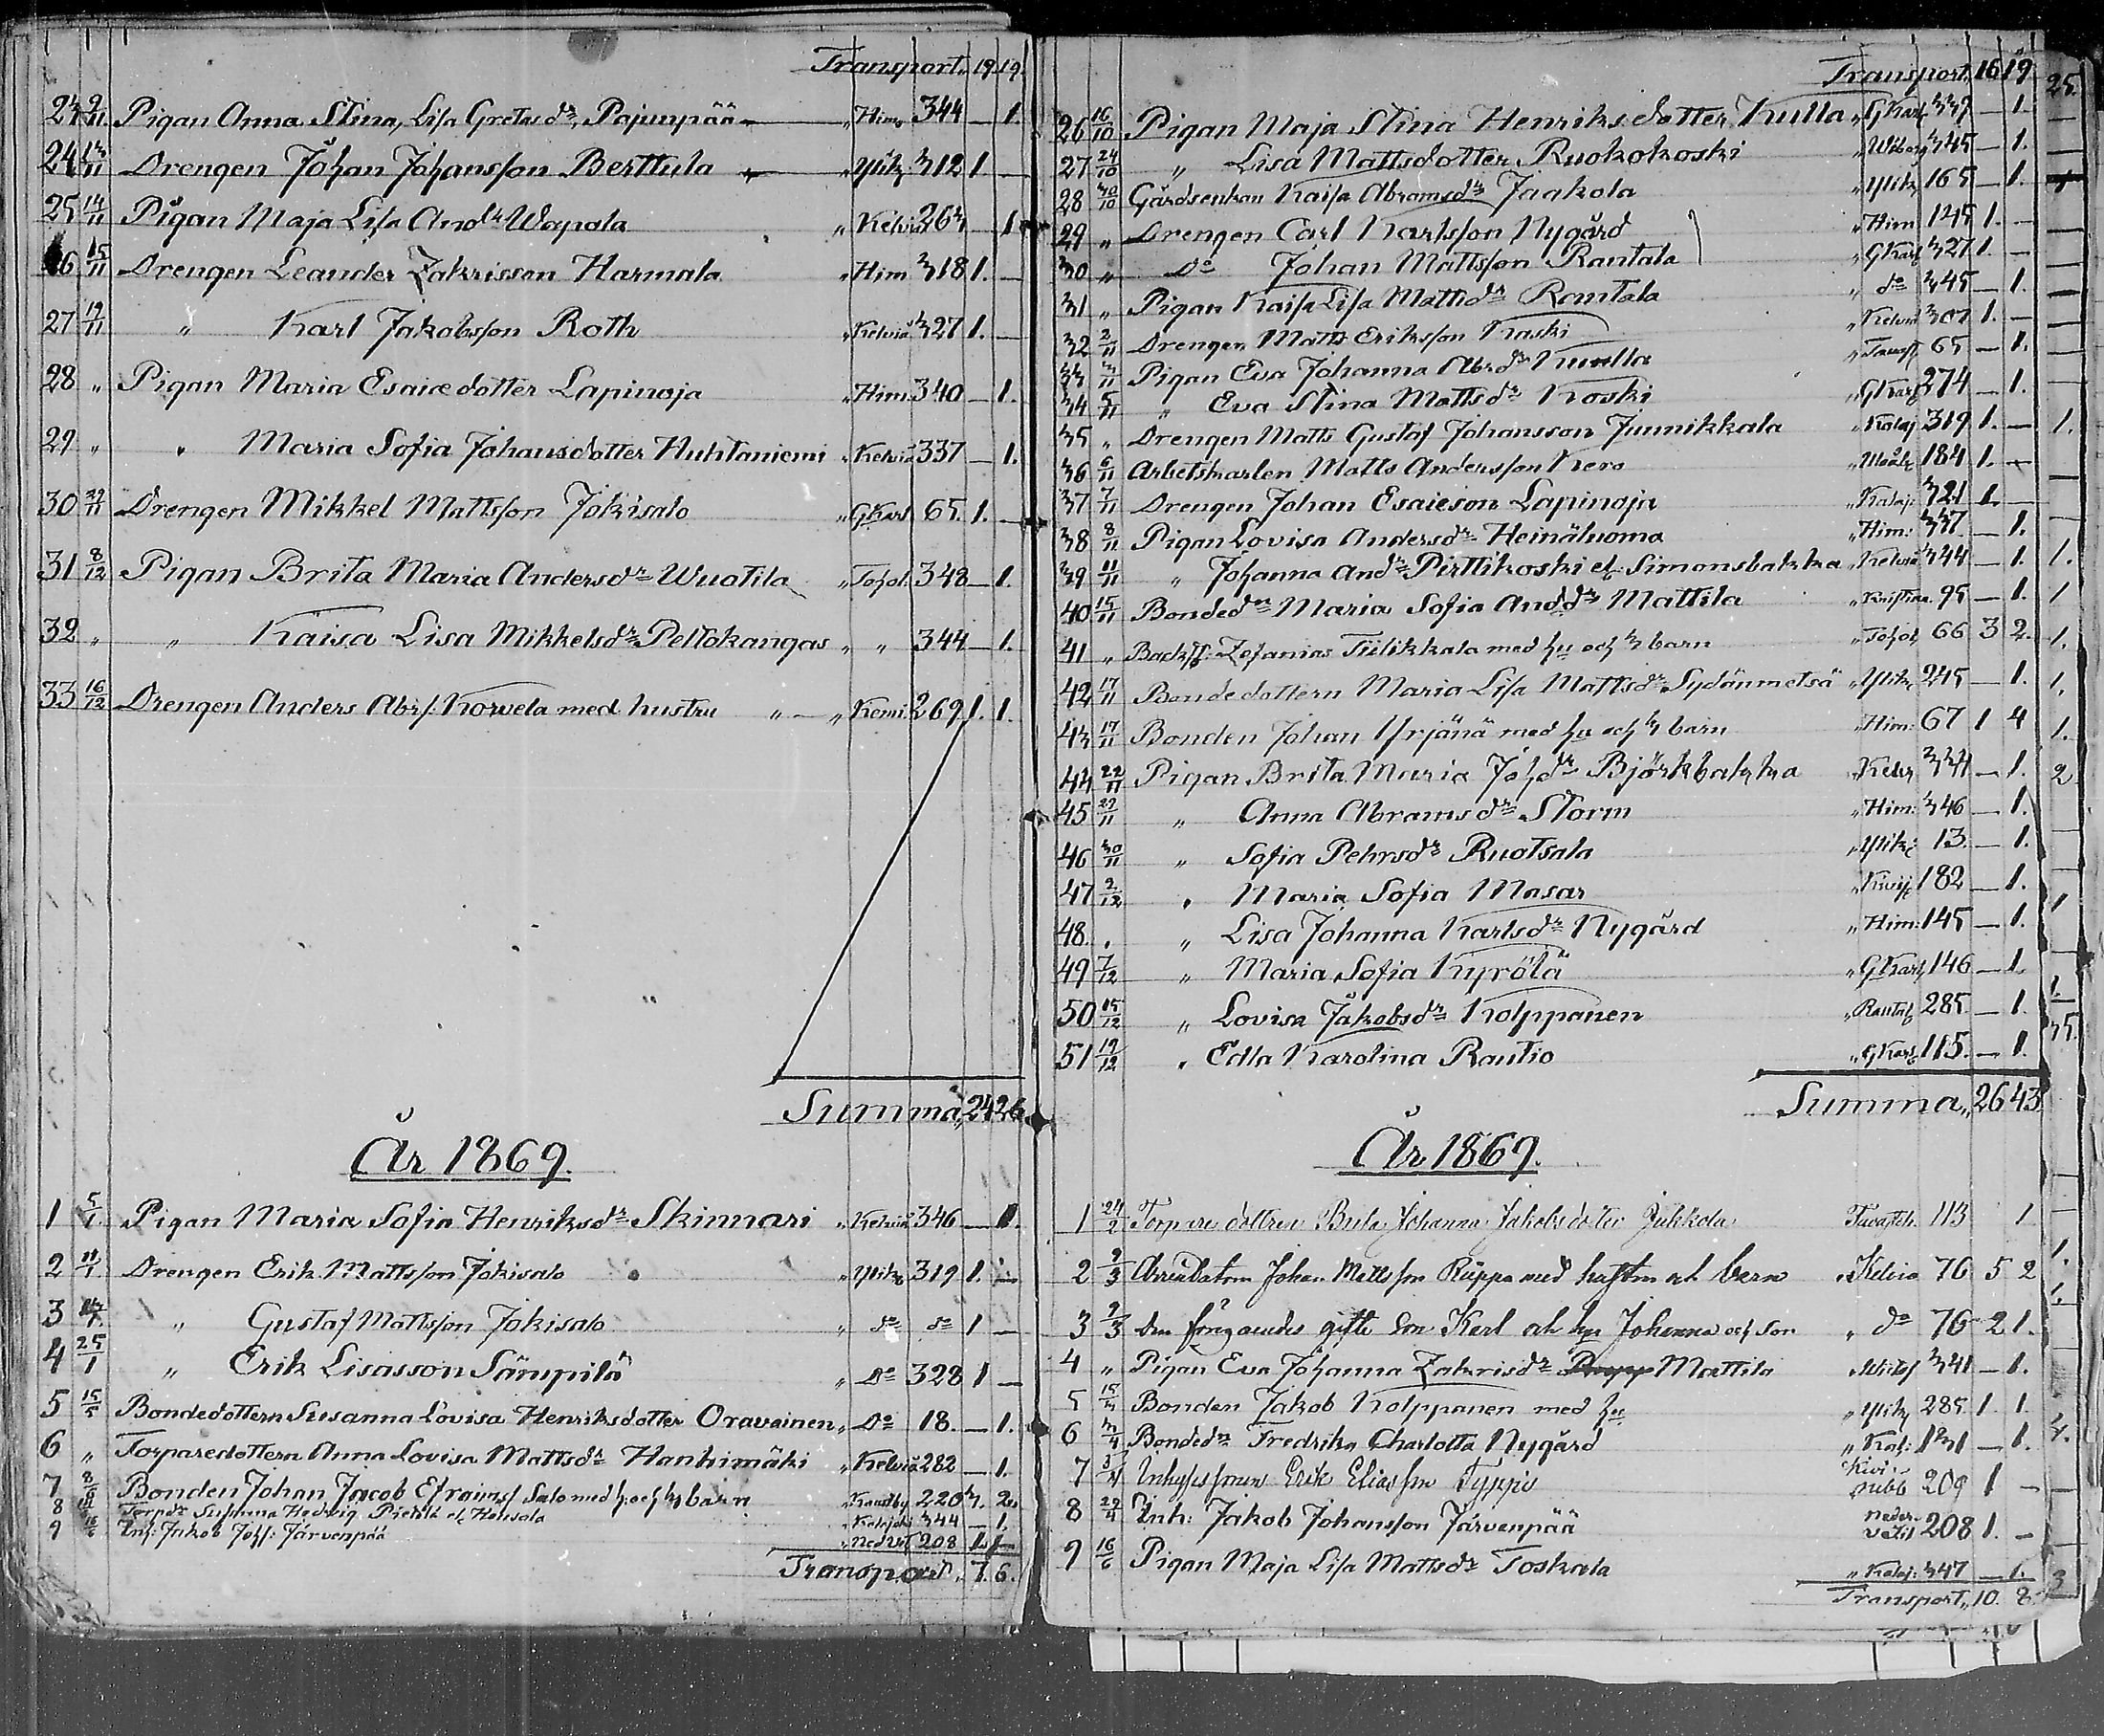 Transport. 19. 19.
23 9/11 Pigan Anna Stina, Lisa Gretas dr, Pajunpää „ Him. 344 — 1.
24 13/11 Drengen Johan Johansson Berttula „ Ylik. 312 1. —
25 14/11 Pigan Maja Lisa And.dr Wapola „ Kelviå 263 — 1
26 15/11 Drengen Leander Zakrisson Harmala „ Him. 318 1. —
27 19/11 „ Karl Jakobsson Roth „ Kelviå 327 1. —
28 „ Pigan Maria Esaiædotter Lapinoja „ Him. 340 — 1.
29 „ „ Maria Sofia Johansdotter Huhtaniemi „ Kelviå 337 — 1.
30 29/11 Drengen Mikkel Mattsson Jokisalo „ GKarl. 65. 1. —
31 8/12 Pigan Brita Maria Andersdr Wuotila „ Tohol. 348 — 1.
32 „ „ Kaisa Lisa Mikkelsdr Peltokangas „ „ 344 — 1.
33 16/12 Drengen Anders Abr.s. Korvela med hustru „ — „ Kemi. 269 1. 1.
Summa, 24 26
År 1869.
1 5/1 Pigan Maria Sofia Henriksdr Skinnari „ Kelviå 346 — 1.
2 11/1 Drengen Erik Mattsson Jokisalo „ Ylik. 319 1. —
3 „ Gustaf Mattsson Jokisalo „ do do 1 —
4 25/1 „ Erik Lisasson Sämpilä „ Do 328 1 —
5 15/5 Bondedottern Susanna Lovisa Henriksdotter Oravainen „ Do 18. — 1.
6 „ Torparedottern Anna Lovisa Mattsdr Hanhimäki „ Kelviå 282 — 1.
7 8/6 Bonden Johan Jacob Efraims. Salo med h. och 3 barn „ Kaustby 220 3. 2.
8 Torpdr Susanna Hedvig „ Kalajoki 344 — 1.
9 16/6 Inh: Jakob Johs: Järvenpää „ Nedvet. 208 1. —
Transport „ 7. 6.
Transport. 16 19
26 16/10 Pigan Maja Stina Henriksdotter Kulla „ GKarl. 339 — 1.
27 24/10 „ Lisa Mattsdotter Ruokokoski „ Wiborg 345 — 1.
28 30/10 Gårdsenkan Kaisa Abramsdr Jaakola „ Ylik. 165 — 1.
29 „ Drengen Carl Karlsson Nygård „ Him 145 1. —
30 „ Do Johan Mattsson Rantala „ GKarl. 327 1. —
31 „ Pigan Kaisa Lisa Mattsdr Rantala „ do 345 — 1.
32 2/11 Drengen Matts Eriksson Kaski „ Kelviå 307 1. —
33 3/11 Pigan Eva Johanna Abrdr Knulla 65 — 1.
34 5/11 „ Eva Stina Mattsdr Koski „ GKarl 274 — 1.
35 „ Drengen Matts Gustaf Johansson Junnikkala „ Kalaj 319 1. —
36 6/11 Arbetskarlen Matts Andersson Kero 184 1. —
37 7/11 Drengen Johan Esaieson Lapinoja „ Kalaj. 321 1. —
38 8/11 Pigan Lovisa Andersdr Heinäluoma „ Him: 337. — 1.
39 11/11 „ Johanna Anddr Pirttikoski el. Simonsbakka „ Kelviå 344 — 1.
40 15/11 Bondedn Maria Sofia Anddr Mattila „ Kristina. 95 — 1.
41 „ Backst: Zefanias Tiilikkala med hu och 3 barn „ Tohol. 66 3 2.
42 17/11 Bondedottern Maria Lisa Mattsdr Sydänmetsä „ Ylik. 245 — 1.
43 17/11 Bonden Johan Yrjänä med hu och 3 barn „ Him: 67 1 4
44 22/11 Pigan Brita Maria Johdr Björkbakka „ Kelv. 334 — 1.
45 27/11 „ Anna Abramsdr Storm „ Him: 346 — 1.
46 30/11 „ Sofia Pehrsdr Ruotsala „ Ylik. 13. — 1.
47 2/12 „ Maria Sofia Masar „ Kivij. 182 — 1.
48. „ „ Lisa Johanna Karlsdr Nygård „ Him: 145 — 1.
49 7/12 „ Maria Sofia Kyrölä „ GKarl. 146 — 1.
50 15/12 „ Lovisa Jakobsdr Kolppanen „ Rautal. 285. — 1.
51 19/12 „ Edla Karolina Rautio „ GKarl. 115. — 1.
Summa „ 26 43
År 1869.
1 24/2 Torparedottren Brita Johanna Jakobsdotter Jukkola 113 1
2 9/3 Johan Mattsson med hustru och barn „ Kelviå 76 5 2
3 9/3 Den föregåendes gifte son Karl och hu Johanna och son „ do 76 2 1.
4 „ Pigan Eva Johanna Zakrisdr Mattila 341 — 1.
5 15/3 Bonden Jakob Kolppanen med hu „ Ylik. 285. 1. 1.
6 3/4 Bondedn Fredrika Charlotta Nygård „ Kal: 131 — 1.
7 3/4 Inhysesman Erik Eliasson Typpö Kivinubb 209 1 —
8 29/4 Inh: Jakob Johansson Järvenpää Nedervetil 208 1. —
9 16/6 Pigan Maja Lisa Mattsdr Toskala „ Kalaj: 347 — 1.
Transport „ 10. 8.
25.
1.
1.
1
1.
1.
1.
2
1
1.
35.
1.
1.
3